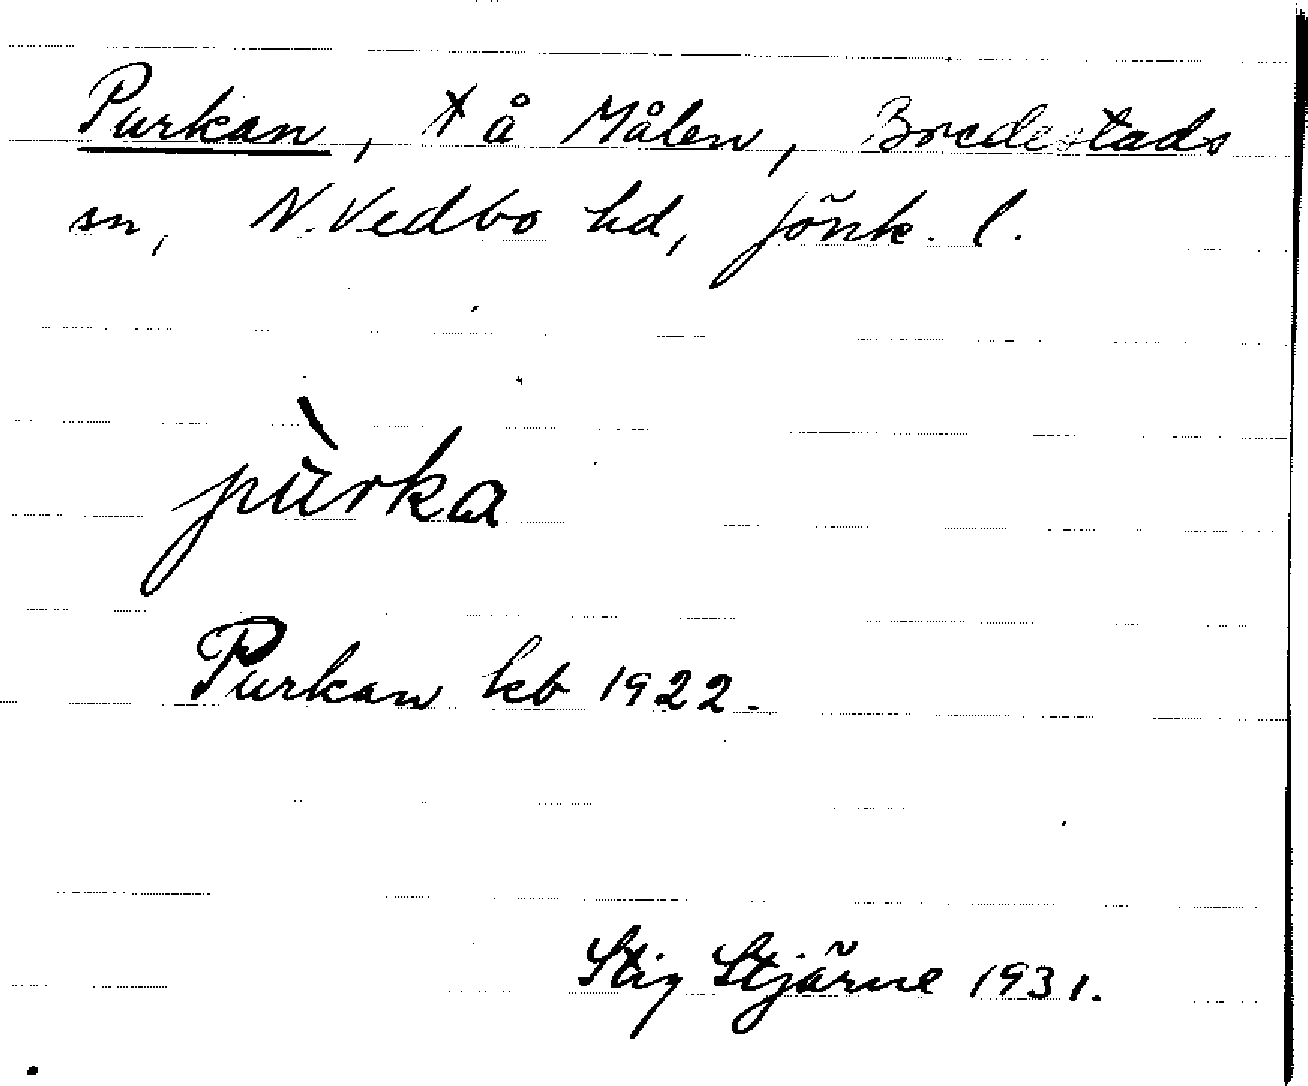 Purkan, x å Målen, Bredestads
sn, N. Vedbo hd, Jönk. l.
pùrka
Purkan kb 1922.
Stig Stjärne 1931.